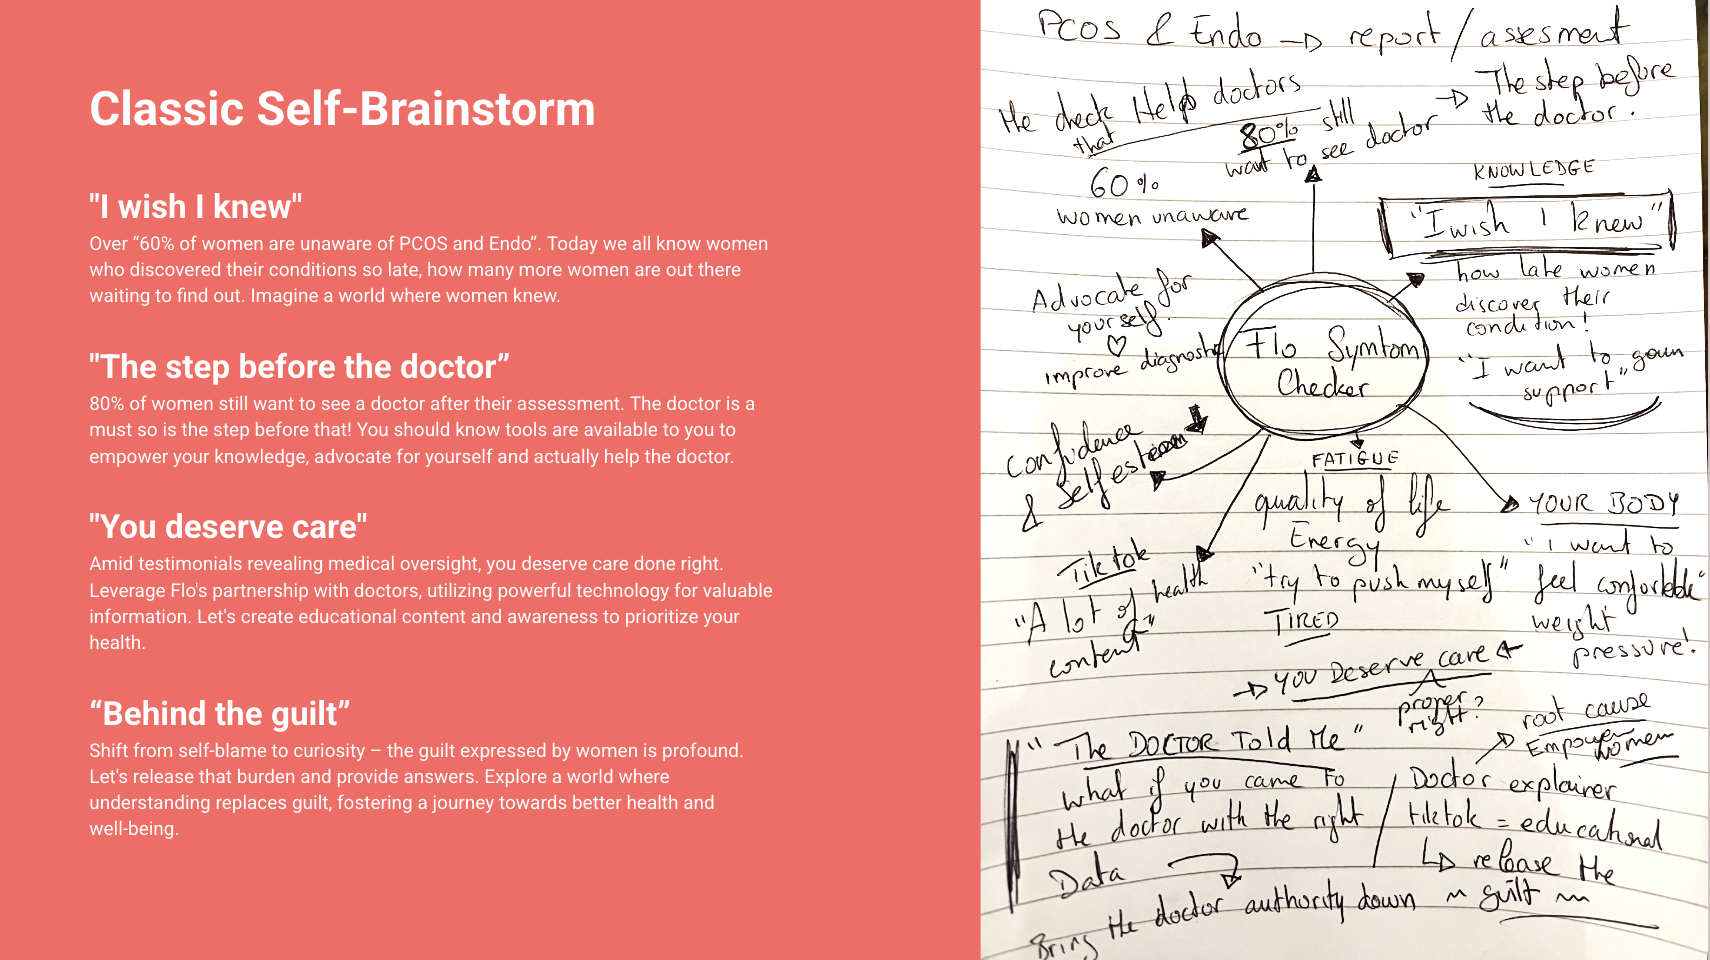 Classic Self-Brainstorm
"I wish I knew"
Over “60% of women are unaware of PCOS and Endo”. Today we all know women
who discovered their conditions so late, how many more women are out there
waiting to find out. Imagine a world where women knew.
"The step before the doctor”
80% of women still want to see a doctor after their assessment. The doctor is a
must so is the step before that! You should know tools are available to you to
empower your knowledge, advocate for yourself and actually help the doctor.
"You deserve care"
Amid testimonials revealing medical oversight, you deserve care done right.
Leverage Flo's partnership with doctors, utilizing powerful technology for valuable
information. Let's create educational content and awareness to prioritize your
health.
“Behind the guilt”
Shift from self-blame to curiosity – the guilt expressed by women is profound.
Let's release that burden and provide answers. Explore a world where
understanding replaces guilt, fostering a journey towards better health and
well-being.
PCOS & Endo → report / assesment
The check Help doctors
that
80% still
want to see doctor
→ The step before
the doctor.
60%
women unaware
KNOWLEDGE
"I wish I knew"
how late women
discover their
condition!
"I want to
support"
Advocate for
yourself.
♡
improve
Flo Symtom
Checker
Confidence
& Self esteem
FATIGUE
quality of life
Energy
"try to push myself"
TIRED
YOUR BODY
"I want to
feel confortable"
weight
pressure!
Tiktok
"A lot of health
content"
→ YOU Deserve care ←
proper
right?
"The DOCTOR Told Me"
what if you came to
the doctor with the right
Data
Bring the doctor authority down
root cause
Empower
women
Doctor explainer
tiktok = educational
↳ release the
~ guilt ~